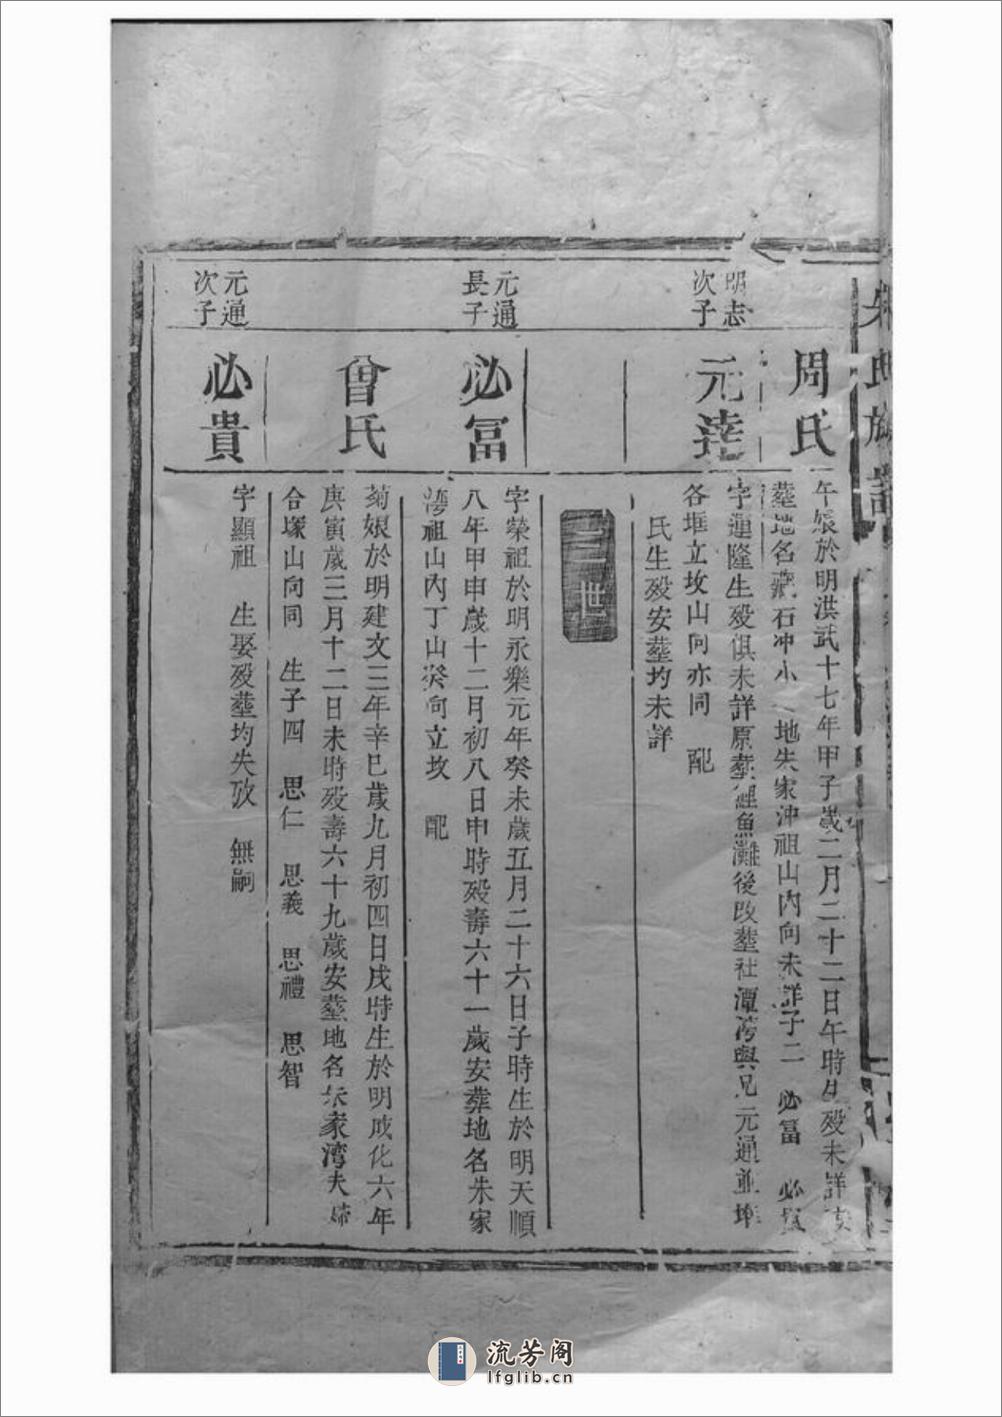 朱氏族譜
周氏
午娘於明洪武十七年甲子歲二月二十二日午時生歿未詳
塟地名藏石冲小地朱家冲祖山內向未詳子二 必冨 必貴
明志次子
元達
字運隆生歿俱未詳原塟鯉魚灘後改塟社潭湾與兄元通並堆
各堆立坟山向亦同 配
氏生歿安塟均未詳
三世
元通長子
必冨
字榮祖於明永樂元年癸未歲五月二十六日子時生於明天順
八年甲申歲十二月初八日申時歿壽六十一歲安葬地名朱家
湾祖山內丁山癸向立坟 配
曾氏
菊娘於明建文三年辛巳歲九月初四日戌時生於明成化六年
庚寅歲三月十二日未時歿壽六十九歲安塟地名朱家湾夫婦
合塚山向同 生子四 思仁 思義 思禮 思智
元通次子
必貴
字顯祖 生娶歿塟均失攷 無嗣
流芳阁
lfglib.cn